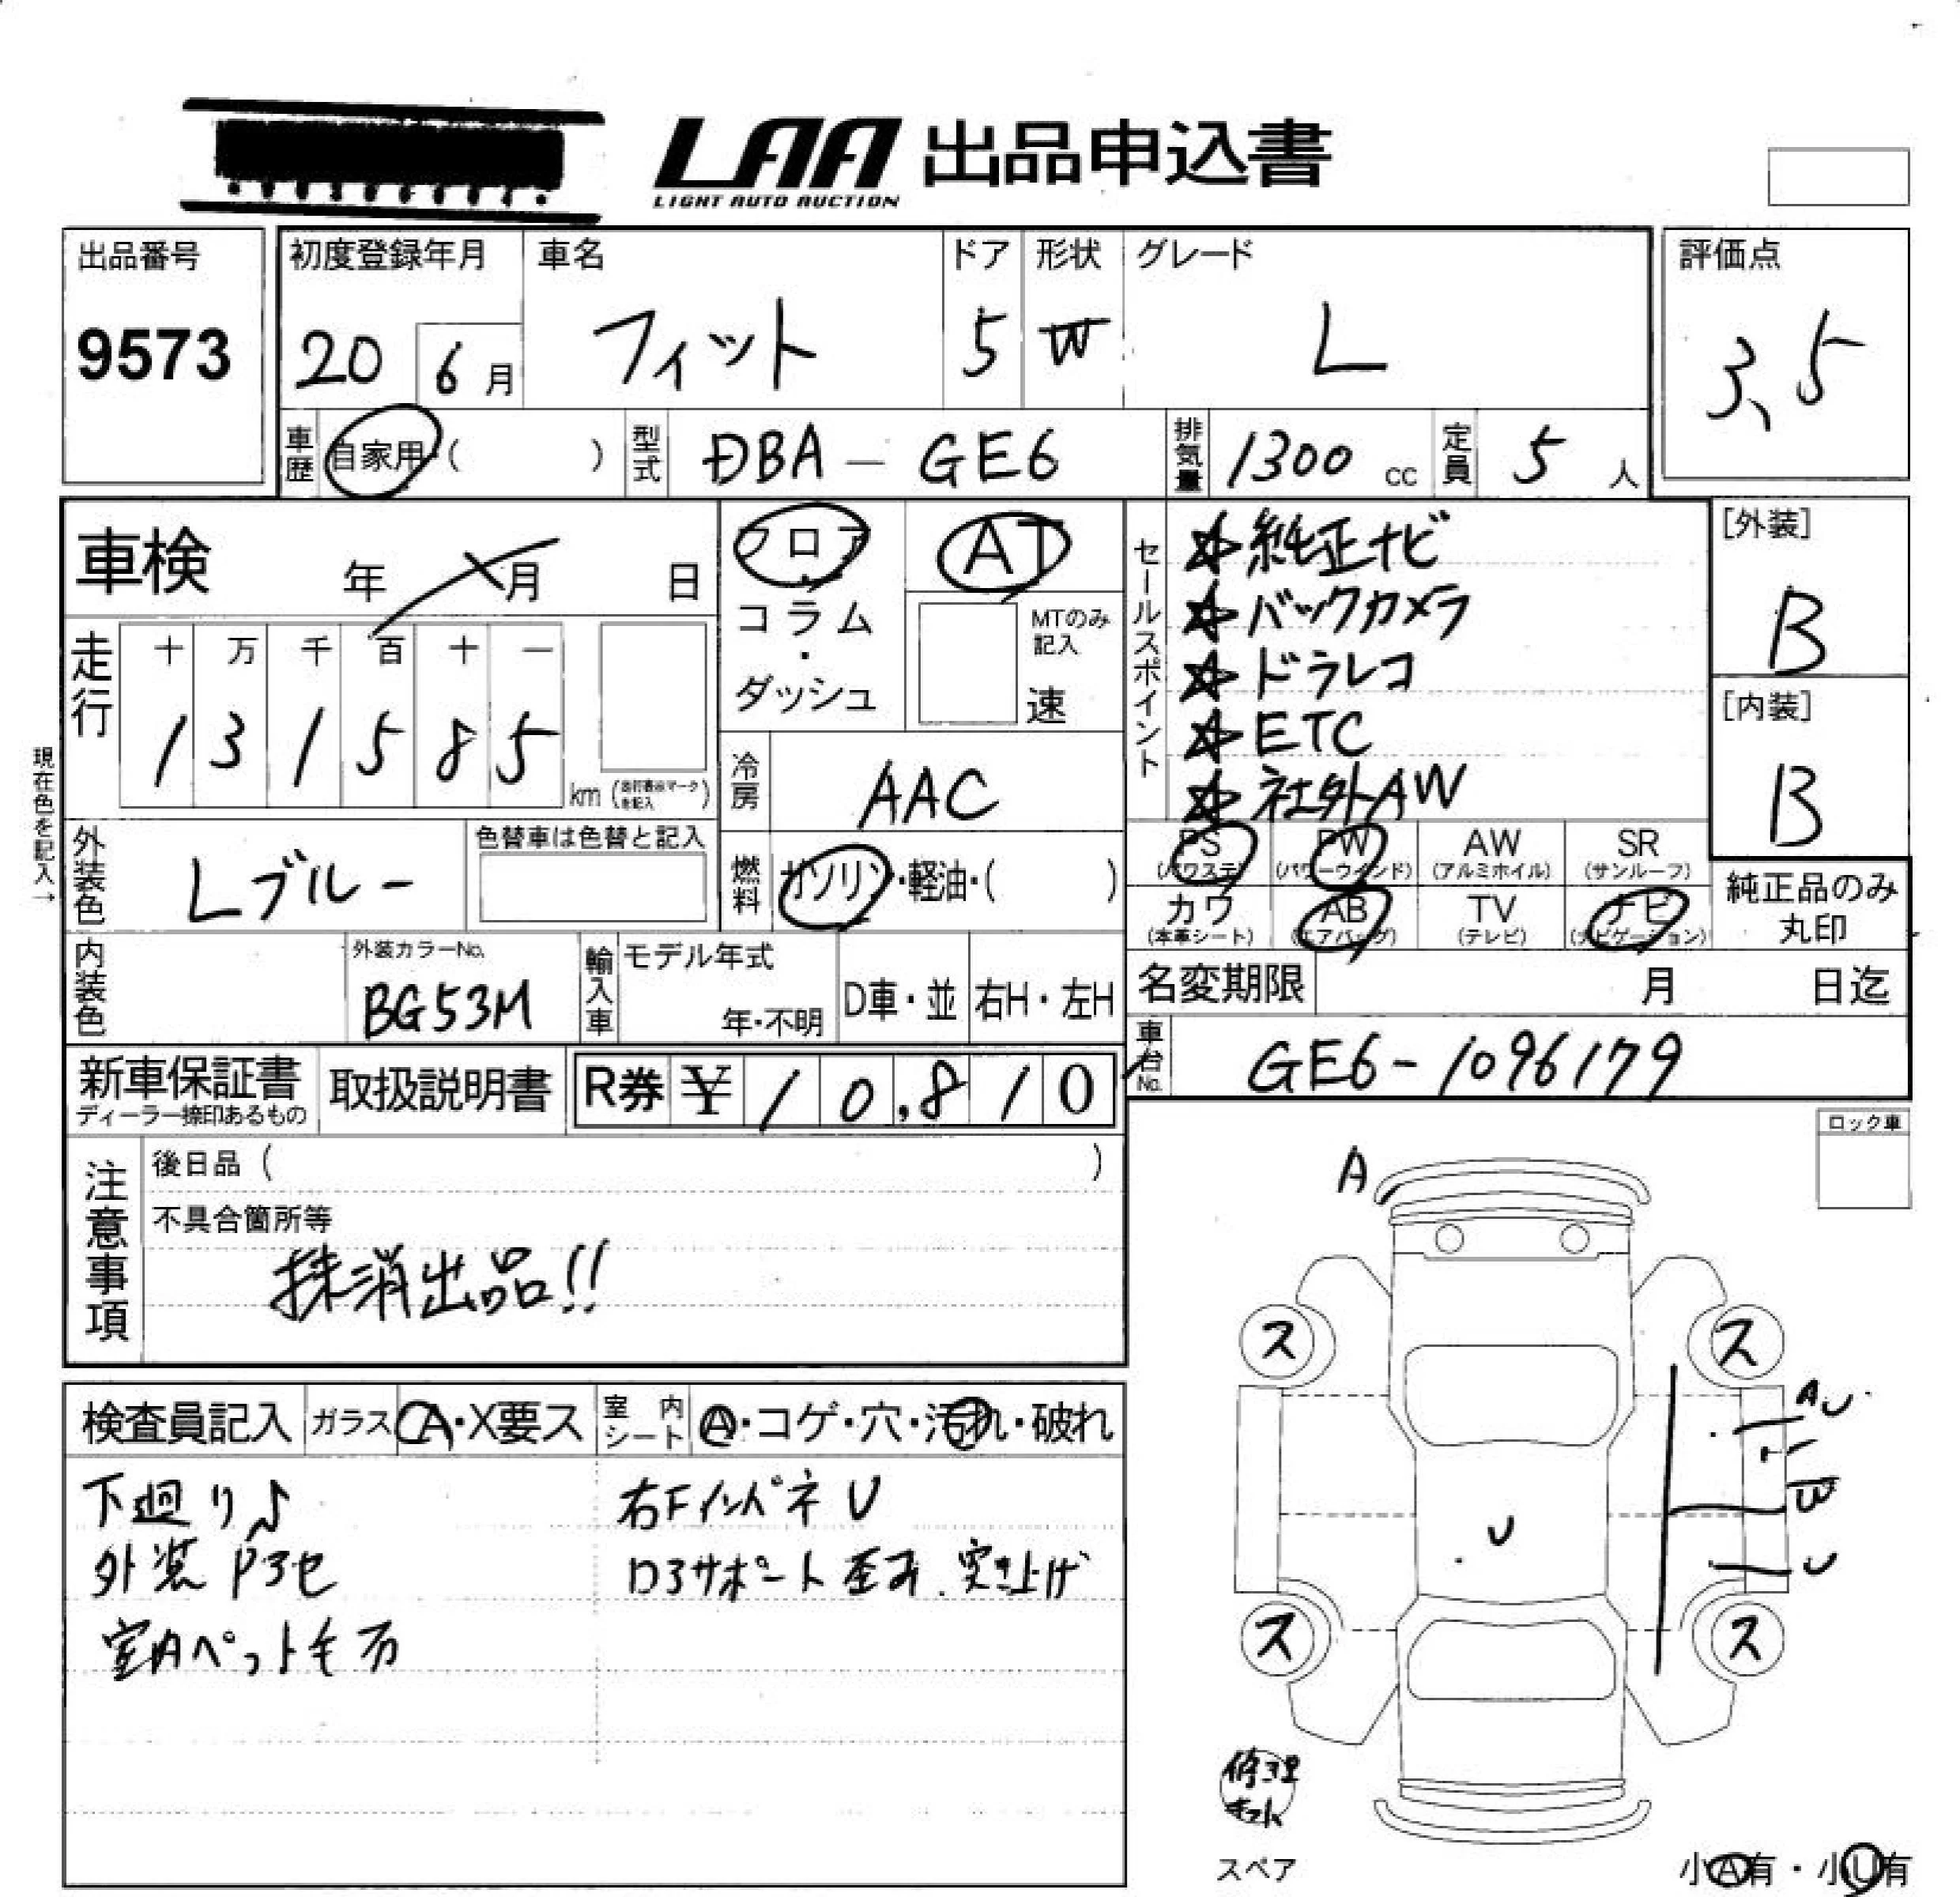 LAA 出品申込書
LIGHT AUTO AUCTION
出品番号
9573
初度登録年月
20 6 月
車名
フィット
ドア
5
形状
W
グレード
L
評価点
3.5
車歴 自家用・( )
型式 DBA - GE6
排気量 1300 cc
定員 5 人
車検 年 月 日
フロア・コラム・ダッシュ
AT
MTのみ記入
速
セールスポイント
☆純正ナビ
☆バックカメラ
☆ドラレコ
☆ETC
☆社外AW
[外装]
B
[内装]
B
走行
十 万 千 百 十 一
1 3 1 5 8 5
km (走行表示マークを記入)
現在色を記入→
冷房 AAC
外装色 Lブルー
色替車は色替と記入
燃料 ガソリン・軽油・( )
PS (パワステ) PW (パワーウインド) AW (アルミホイル) SR (サンルーフ)
カワ (本革シート) AB (エアバッグ) TV (テレビ) ナビ (ナビゲーション)
純正品のみ丸印
内装色
外装カラーNo.
BG53M
輸入車
モデル年式
年・不明
D車・並 右H・左H
名変期限 月 日迄
車台No. GE6-1096179
新車保証書
ディーラー捺印あるもの
取扱説明書
R券 ¥ 1 0,8 1 0
注意事項
後日品 ( )
不具合箇所等
抹消出品!!
ロック車
検査員記入 ガラス A・X要ス 室内シート A・コゲ・穴・汚れ・破れ
下廻りS
外装
室内ペット毛
右Fインパネ U
サポート歪み、突き上げ
A
ス ス
A U
U
U
ス ス
修理キット
スペア
小A有・小U有